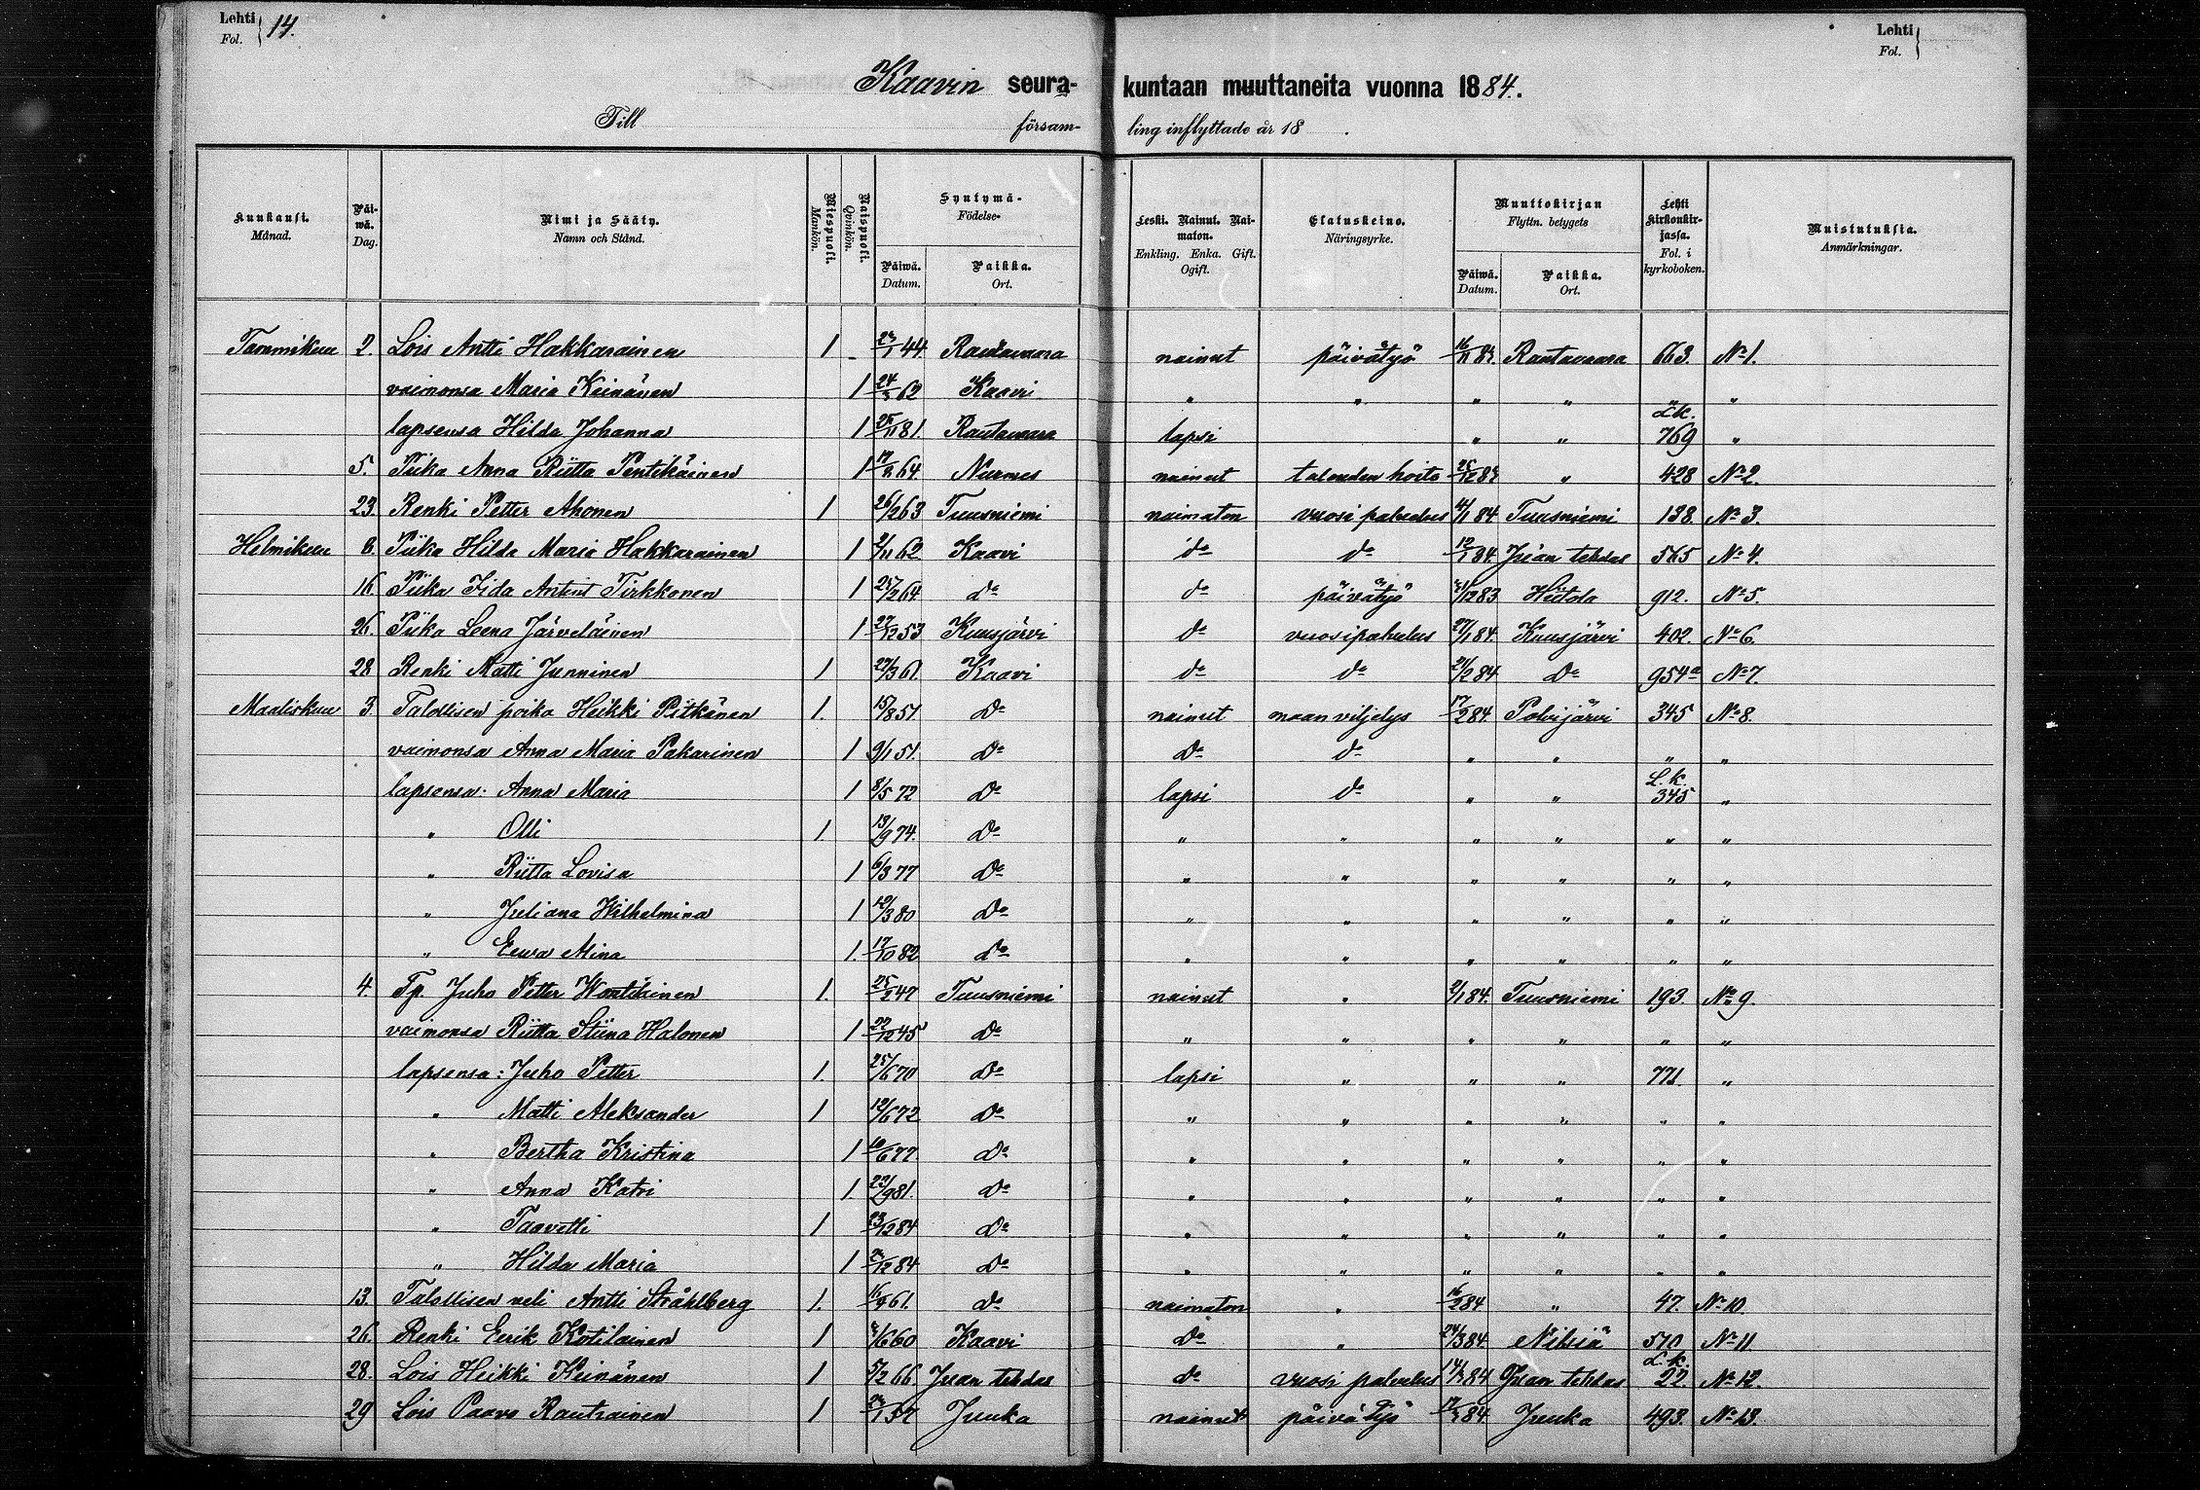 Lehti Fol. 14.
Lehti Fol.
Kaavin seura-kuntaan muuttaneita vuonna 1884.
Till församling inflyttade år 18 .
Kuukausi. Månad. Päiwä. Dag. Nimi ja Sääty. Namn och Stånd. Miespuoli. Mankön. Naispuoli. Qvinkön. Syntymä- Födelse- Päiwä. Datum. Paikka. Ort. Leski. Nainut. Naimaton. Enkling. Enka. Gift. Ogift. Elatuskeino. Näringsyrke. Muuttokirjan Flyttn. betygets Päiwä. Datum. Paikka. Ort. Lehti kirkonkirjassa. Fol. i kyrkoboken. Muistutuksia. Anmärkningar.
Tammikuu 2. Lois Antti Hakkarainen 1 - 44 Rautavaara nainut päivätyö Rautavaara 663. No 1.
vaimonsa Maria Keinänen 1 24/3 62 Kaavi " " " " " "
lapsensa Hilda Johanna 1 25/11 81. Rautavaara lapsi " " Lk. 769 "
5. Piika Anna Riitta Pentikäinen 1 64. Nurmes nainut talouden hoito " 428 No 2.
23. Renki Petter Ahonen 1 26/2 63 Tuusniemi naimaton vuosipalvelus 84 Tuusniemi 138. No 3.
Helmikuu 6. Piika Hilda Maria Hakkarainen 1 2/11 62 Kaavi do do 12/1 84. Juan tehdas 565 No 4.
16. Piika Iida Tirkkonen 1 25/2 64 do do päivätyö 83 Hiitola 912. No 5.
26. Piika Leena Järveläinen 1 27/12 53 Kuusjärvi do vuosipalvelus 27/1 84. Kuusjärvi 402. No 6.
28 Renki Matti Junninen 1 27/3 61. Kaavi do do 21/2 84 Do 954a No 7.
Maaliskuu 3. Talollisen poika Heikki Pitkänen 1. 15/8 51 Do nainut maan viljelys 17/2 84. Polvijärvi 345 No 8.
vaimonsa Anna Maria Pakarinen 1 9/1 51. Do Do do " " " "
lapsensa: Anna Maria 1 8/5 72 Do lapsi do " " L.k. 345 "
" Olli 1. 13/9 74. Do " " " " " "
" Riitta Lovisa 1 6/3 77 Do " " " " " "
" Juliana Wilhelmina 1 12/3 80 Do " " " " " "
" Eeva Miina 1. 17/10 82 do " " " " " "
4. Tp. Juho Petter Wontilainen 1. 25/2 47 Tuusniemi nainut " 2/1 84. Tuusniemi 193. No 9.
vaimonsa Riitta Stiina Halonen 1 22/12 45 Do " " " " " "
lapsensa: Juho Petter 1. 25/6 70 Do lapsi " " " 771. "
" Matti Aleksander 1 12/6 72 Do " " " " " "
" Bertha Kristina 1 10/6 77 Do " " " " " "
" Anna Katri 1 22/9 81. Do " " " " " "
" Taavetti 1 23/12 84 Do " " " " " "
" Hilda Maria 1 84 Do " " " " " "
13. Talollisen veli Antti Stråhlberg 1. 61. do naimaton " 16/2 84 " 47. No 10.
26. Renki Eerik Kotilainen 1 60 Kaavi Do " 24/3 84 Nilsiä 570 No 11
28. Lois Heikki Keinänen 1 5/2 66 Juan tehdas do vuosi palvelus 84 Juan tehdas L.k. 22 No 12.
29 Lois Paavo Rautiainen 1 37 Juuka nainut päivä työ 84 Juuka 493. No 13.